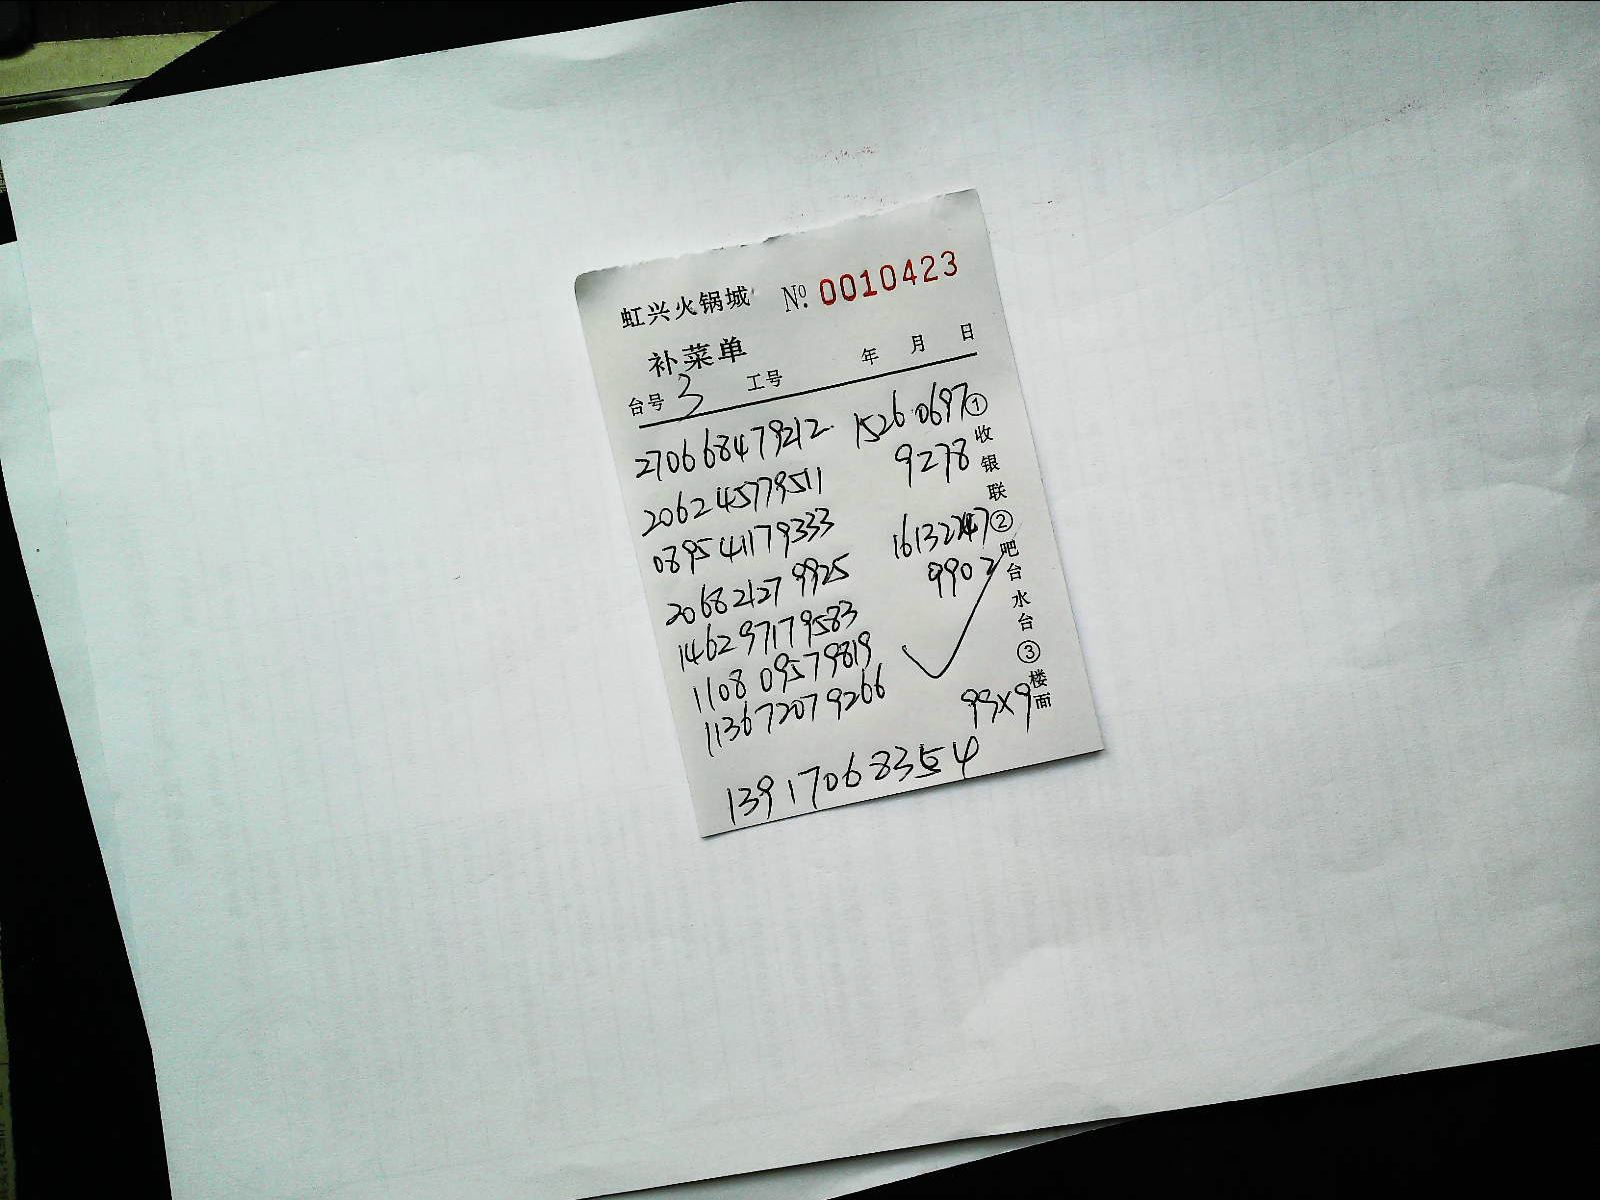 虹兴火锅城 № 0010423
补菜单
台号 3 工号 年 月 日
270668479212 15260697
9278
206245779511
089541179333 16132247
9902
206821279925
146297179583
110809579819
113672079266
99x9
13917068354
①收银联②吧台水台③楼面